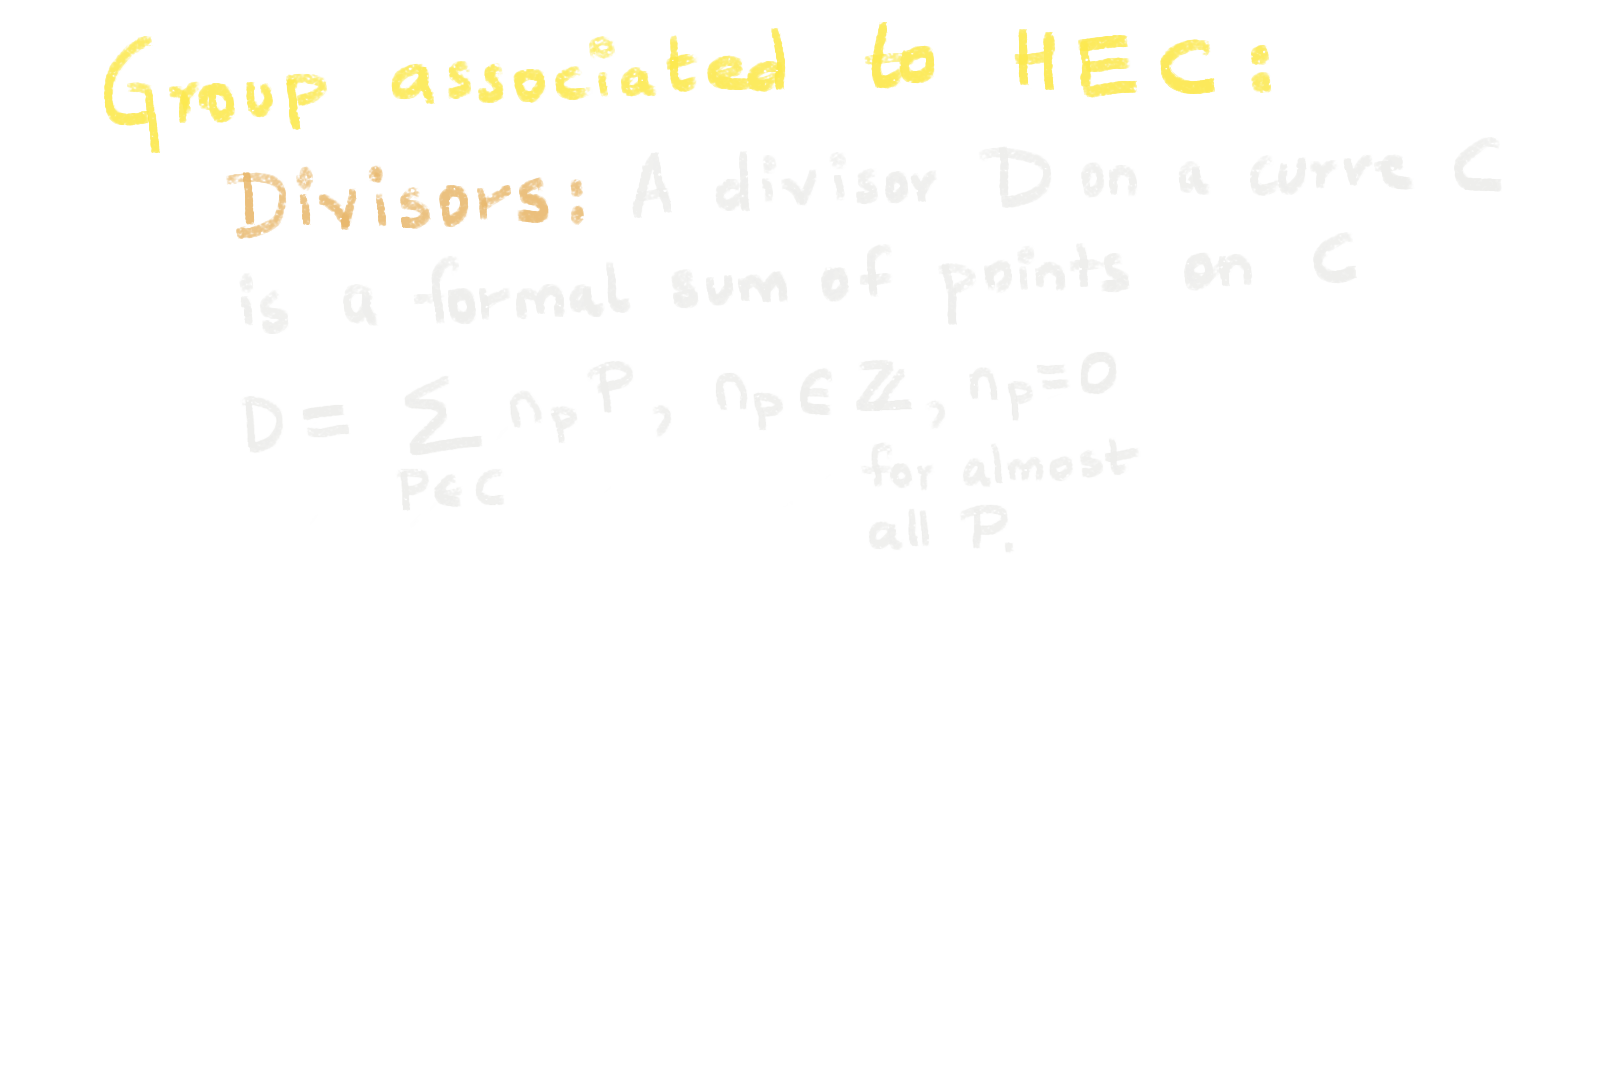 Group associated to HEC:
Divisors: A divisor D on a curve C
is a formal sum of points on C
D = ∑ n_P P, n_P ∈ ℤ, n_P = 0
P ∈ C
for almost
all P.